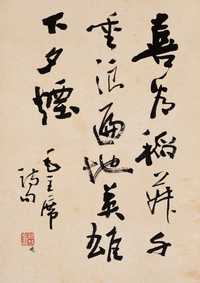 喜看稻菽千
重浪遍地英雄
下夕煙
毛主席
詩句